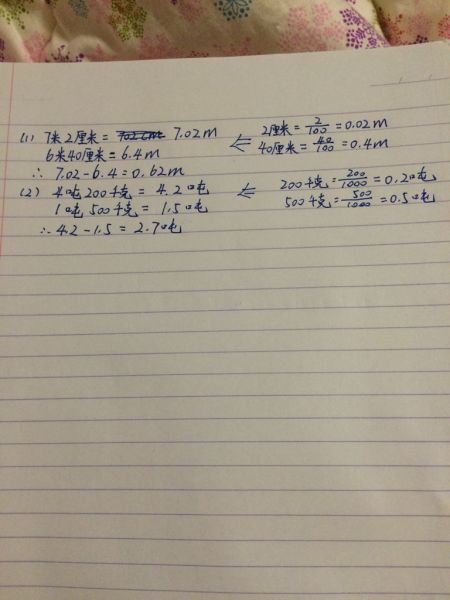 (1) 7米2厘米 = 702cm 7.02m ⇐ 2厘米 = 2/100 = 0.02m
6米40厘米 = 6.4m 40厘米 = 40/100 = 0.4m
∴ 7.02-6.4 = 0.62m
(2) 4吨200千克 = 4.2吨 ⇐ 200千克 = 200/1000 = 0.2吨
1吨500千克 = 1.5吨 500千克 = 500/1000 = 0.5吨
∴ 4.2-1.5 = 2.7吨